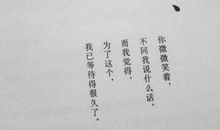 你微微笑看,
不同我说什么话,
而我觉得,
为了这个,
我已等待得很久了。